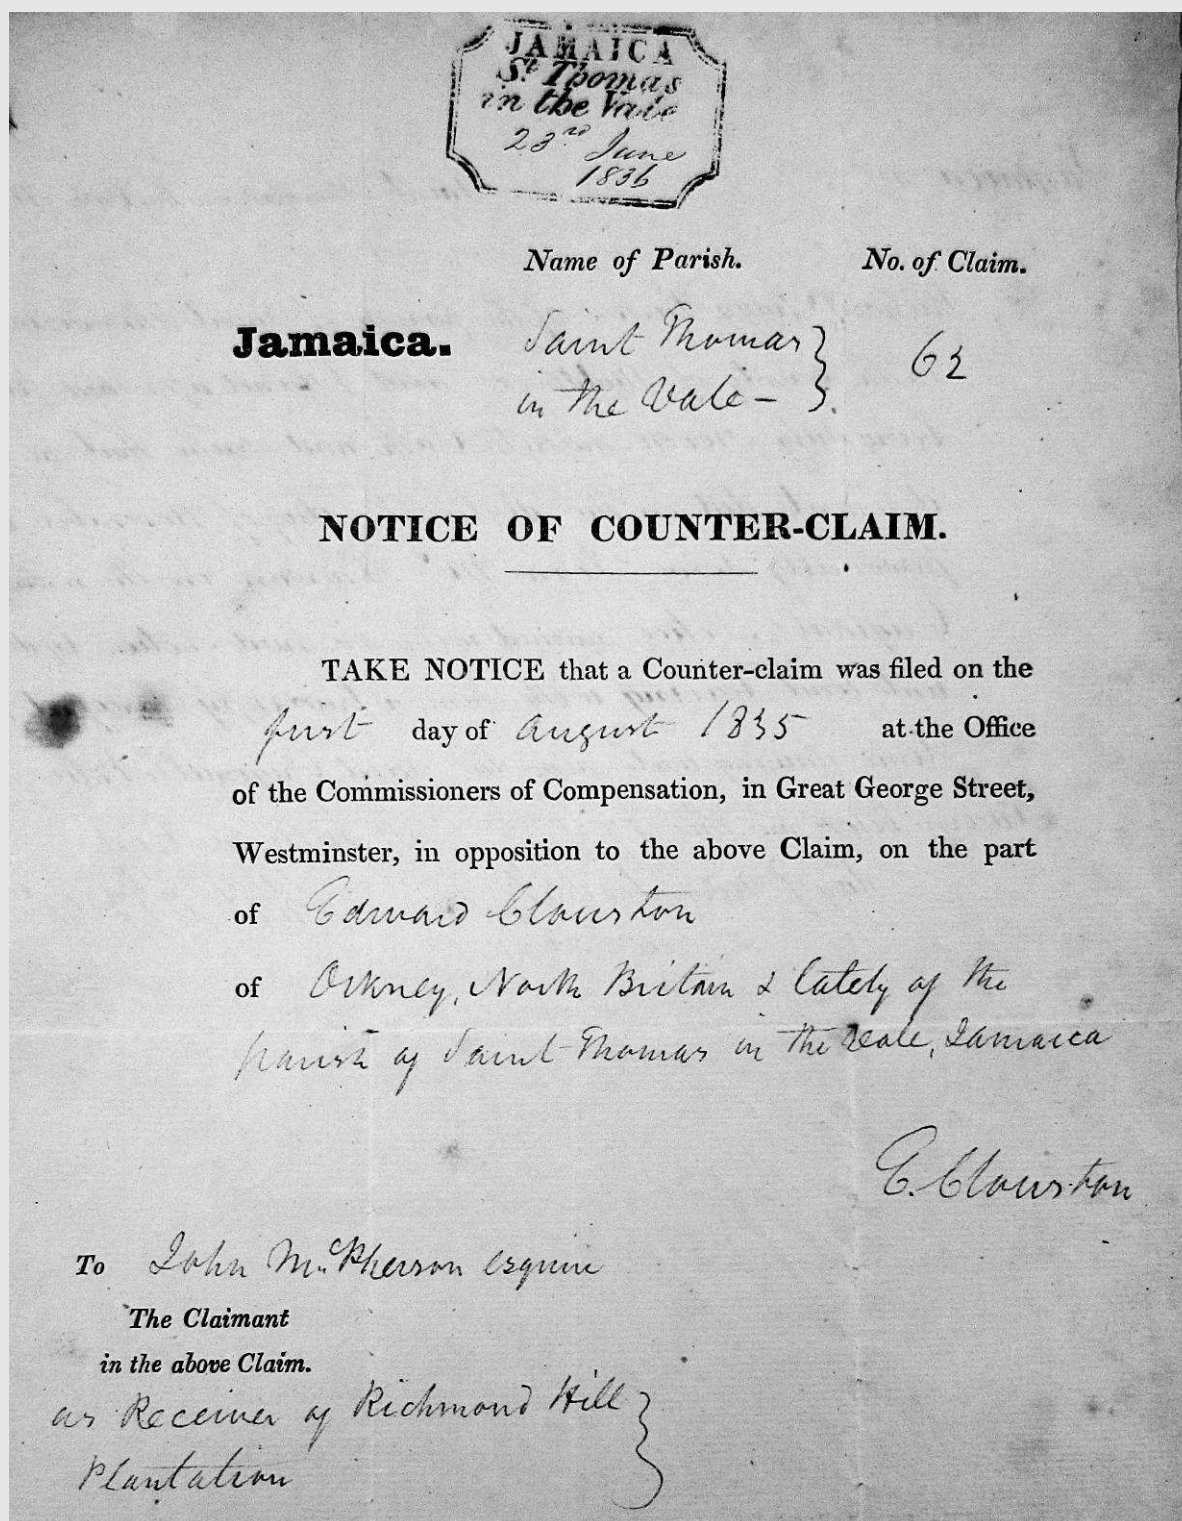 JAMAICA
St Thomas
in the Vale
23rd June
1836
Name of Parish. No. of Claim.
Jamaica. Saint Thomas 63
in the Vale -
NOTICE OF COUNTER-CLAIM.
TAKE NOTICE that a Counter-claim was filed on the
first day of August 1835 at the Office
of the Commissioners of Compensation, in Great George Street,
Westminster, in opposition to the above Claim, on the part
of Edward Clouston
of Orkney, North Britain & lately of the
parish of Saint Thomas in the Vale, Jamaica
E. Clouston
To John McPherson esquire
The Claimant
in the above Claim.
as Receiver of Richmond Hill
Plantation